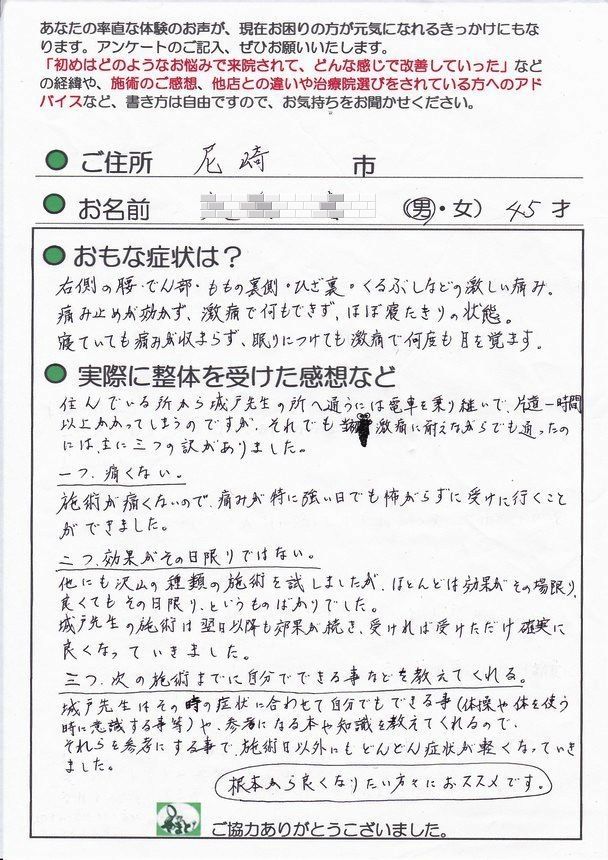 あなたの率直な体験のお声が、現在お困りの方が元気になれるきっかけにもな
ります。アンケートのご記入、ぜひお願いいたします。
「初めはどのようなお悩みで来院されて、どんな感じで改善していった」など
の経緯や、施術のご感想、他店との違いや治療院選びをされている方へのアド
バイスなど、書き方は自由ですので、お気持ちをお聞かせください。
ご住所 尼崎 市
お名前 (男・女) 45才
おもな症状は？
右側の腰・でん部・ももの裏側・ひざ裏・くるぶしなどの激しい痛み。
痛み止めが効かず、激痛で何もできず、ほぼ寝たきりの状態。
寝ていても痛みが収まらず、眠りについても激痛で何度も目を覚ます。
実際に整体を受けた感想など
住んでいる所から城戸先生の所へ通うには電車を乗り継いで、片道一時間
以上かかってしまうのですが、それでも 激痛に耐えながらでも通ったの
には主に三つの訳がありました。
一つ、痛くない。
施術が痛くないので、痛みが特に強い日でも怖がらずに受けに行くこと
ができました。
二つ、効果がその日限りではない。
他にも沢山の種類の施術を試しましたが、ほとんどは効果がその場限り、
良くてもその日限り、というものばかりでした。
城戸先生の施術は翌日以降も効果が続き、受ければ受けただけ確実に
良くなっていきました。
三つ、次の施術までに自分でできる事などを教えてくれる。
城戸先生はその時の症状に合わせて自分でもできる事(体操や体を使う
時に意識する事等)や、参考になる本や知識を教えてくれるので、
それらを参考にする事で、施術日以外にもどんどん症状が軽くなっていき
ました。
根本から良くなりたい方々におススメです。
ご協力ありがとうございました。